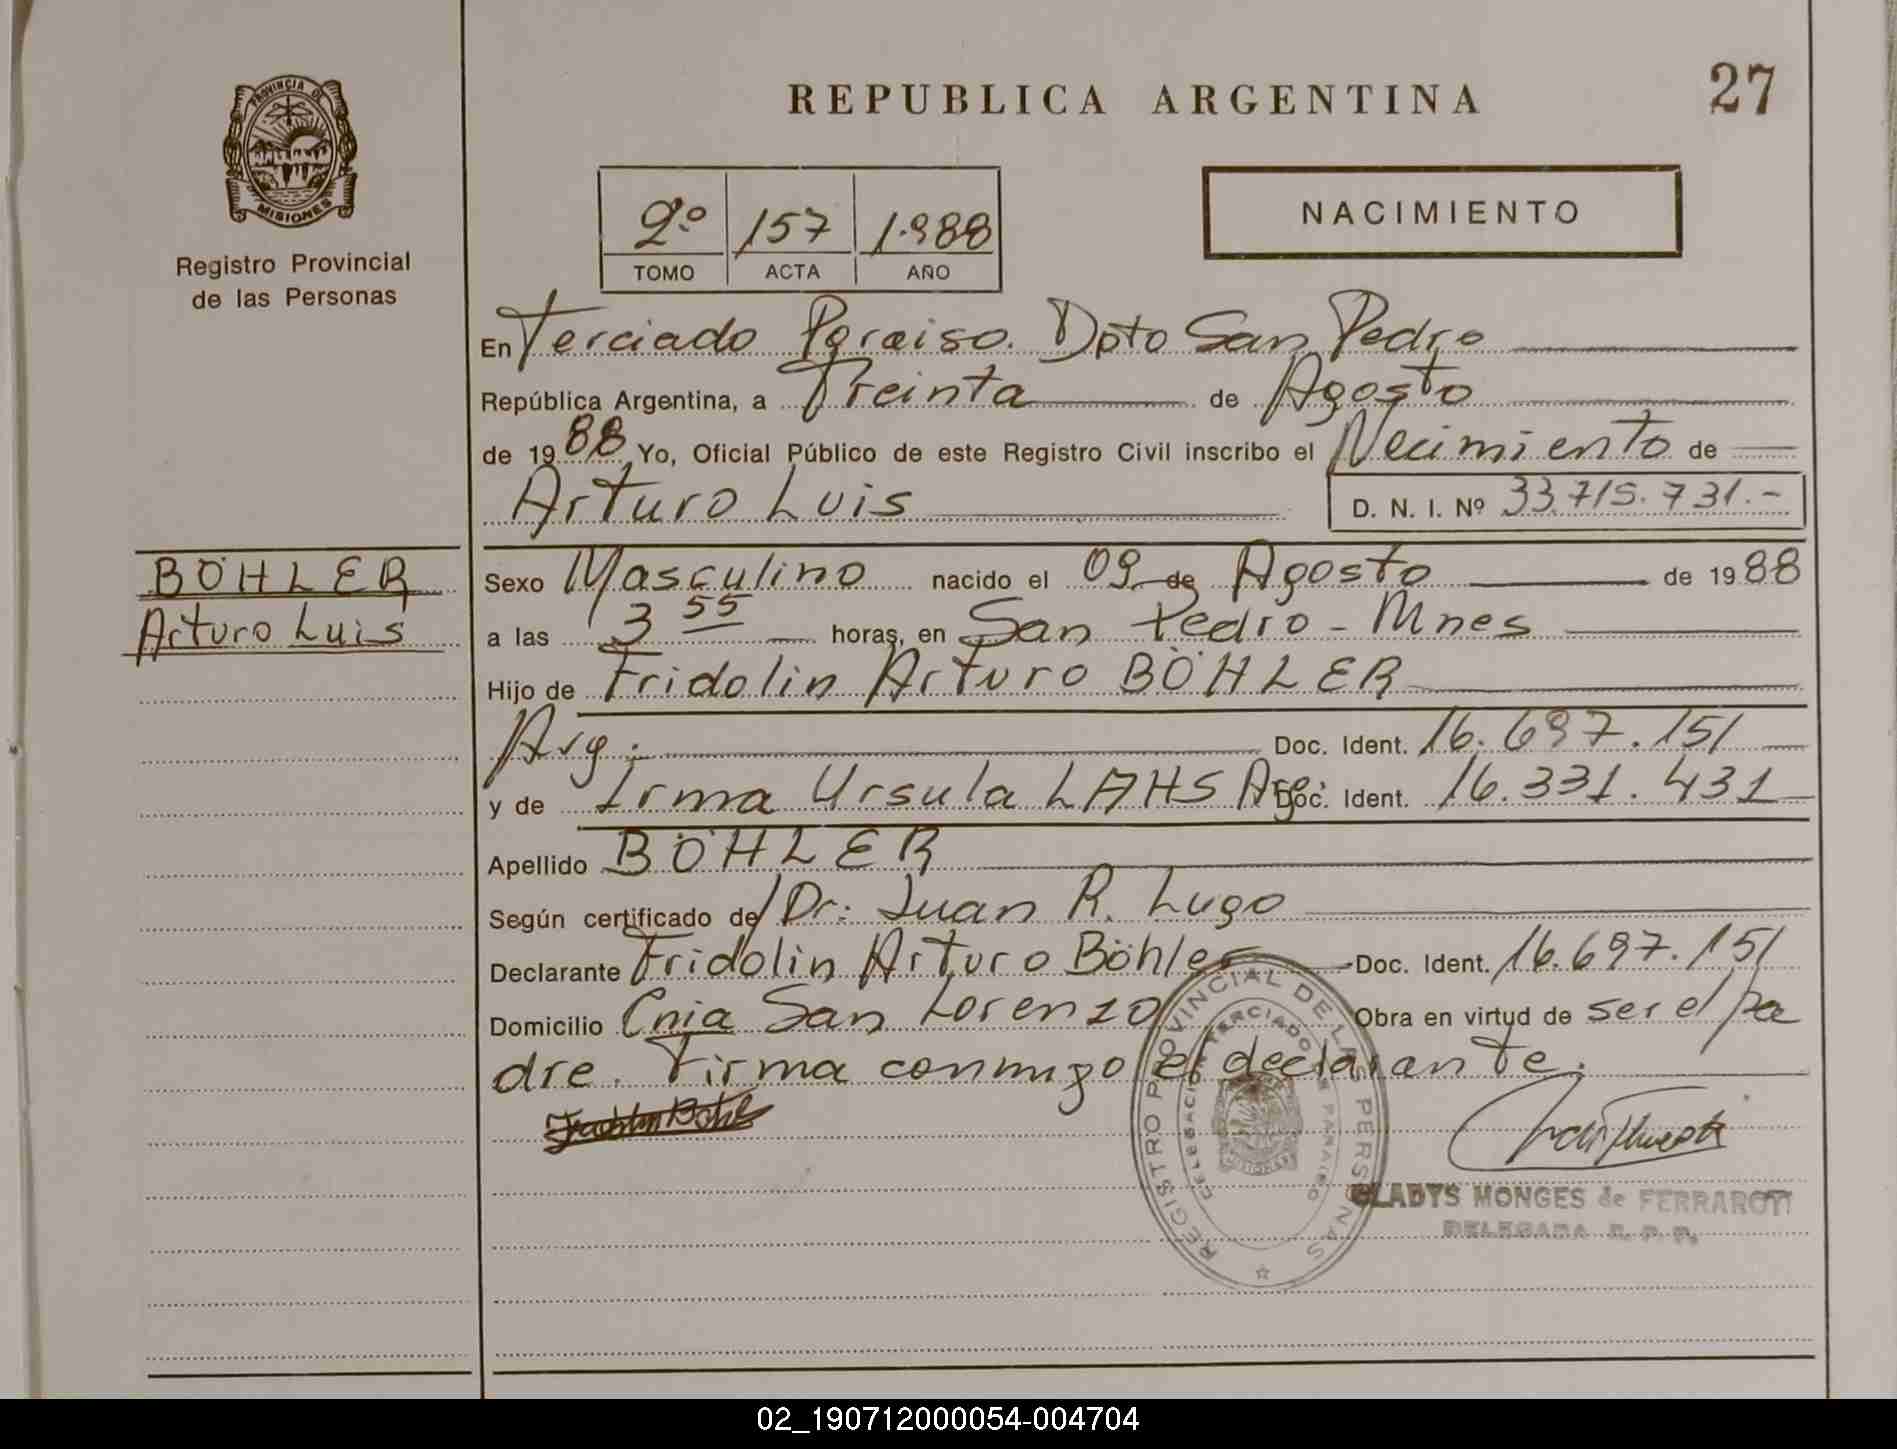 REPUBLICA ARGENTINA
27
PROVINCIA DE
MISIONES
Registro Provincial
de las Personas
2º 157 1.988
TOMO ACTA AÑO
NACIMIENTO
En Terciado Paraiso. Dpto San Pedro
República Argentina, a Treinta de Agosto
de 1988 Yo, Oficial Público de este Registro Civil inscribo el Nacimiento de
Arturo Luis D. N. I. Nº 33.715.731.-
BÖHLER
Arturo Luis
Sexo Masculino nacido el 09 de Agosto de 1988
a las 3 55 horas, en San Pedro - Mnes
Hijo de Fridolin Arturo BÖHLER
Arg. Doc. Ident. 16.697.151
y de Irma Ursula LAHS Arg. Doc. Ident. 16.331.431
Apellido BÖHLER
Según certificado de Dr. Juan R. Lugo
Declarante Fridolin Arturo Böhler Doc. Ident. 16.697.151
Domicilio Cnia San Lorenzo Obra en virtud de ser el pa
dre. Firma conmigo el declarante.
REGISTRO PROVINCIAL DE LAS PERSONAS
DELEGACION TERCIADOS PARAISO
MISIONES
GLADYS MONGES de FERRAROTI
DELEGADA R. P. P.
02_190712000054-004704